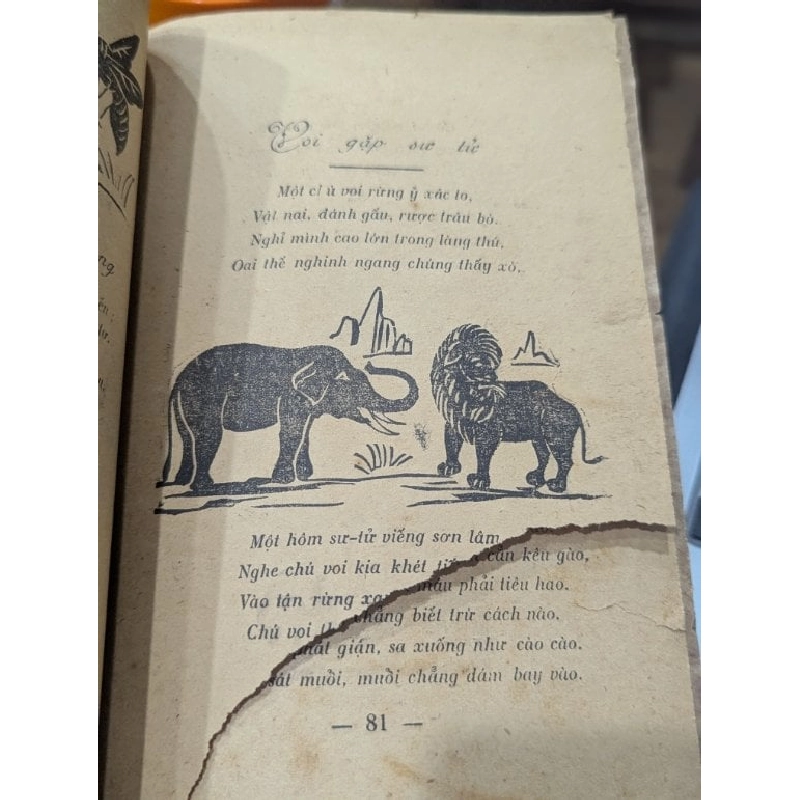 Voi gặp sư tử
Một chú voi rừng ỷ xác to,
Vật nai, đánh gấu, rượt trâu bò.
Nghỉ mình cao lớn trong làng thú,
Oai thế nghinh ngang chúng thấy xò.
Một hôm sư-tử viếng sơn lâm
Nghe chú voi kịa khét kêu gào,
Vào tận rừng máu phải tiêu hao.
Chú voi chẳng biết trừ cách nào.
phát giận, sa xuống như cào cào.
sát muồi, muồi chẳng dám bay vào.
— 81 —
ng